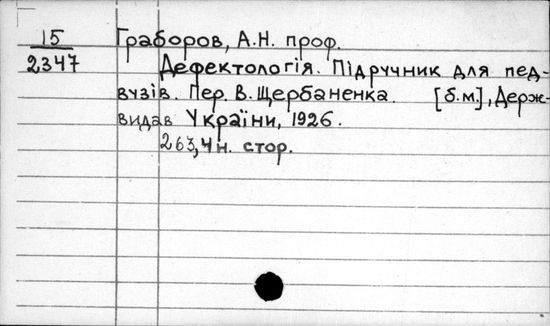 15 Граборов, А.Н. проф.
2347 Дефектологія. Підручник для пед-
вузів. Пер. В. Щербаненка. [б.м.], Держ-
видав України, 1926.
263,4н. стор.